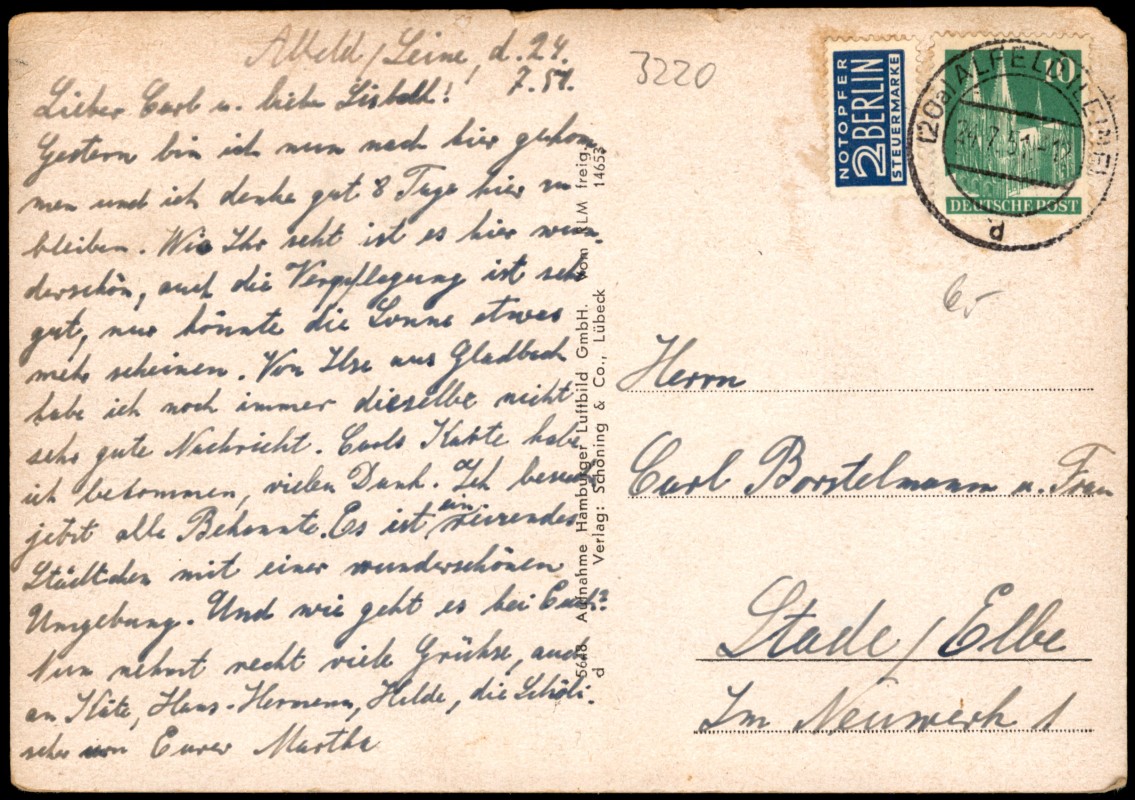 Alfeld/Leine, d. 24.
7.51.
Lieber Carl u. liebe Lisbeth!
Gestern bin ich nun nach hier gekom
men und ich denke gut 8 Tage hier zu
bleiben. Wie Ihr seht ist es hier wun-
derschön, auch die Verpflegung ist sehr
gut, nur könnte die Sonne etwas
mehr scheinen. Von Ilse aus Gladbeck
habe ich noch immer dieselbe nicht
sehr gute Nachricht. Carls Karte habe
ich bekommen, vielen Dank. Ich besuche
jetzt alle Bekannte. Es ist ein reizendes
Städtchen mit einer wunderschönen
Umgebung. Und wie geht es bei Euch?
Nun nehmt recht viele Grüße, auch
an Käte, Hans-Hermann, Hilde, die Schöli-
scher von Eurer Martha
5648 Aufnahme Hamburger Luftbild GmbH. vom BLM freig.
d Verlag: Schöning & Co., Lübeck 14653
3220
NOTOPFER
2 BERLIN
STEUERMARKE
10
DEUTSCHE POST
(20a) ALFELD (LEINE)
24.7.51-12
d
Herrn
Carl Borstelmann u. Frau
Stade/Elbe
Im Neuwerk 1